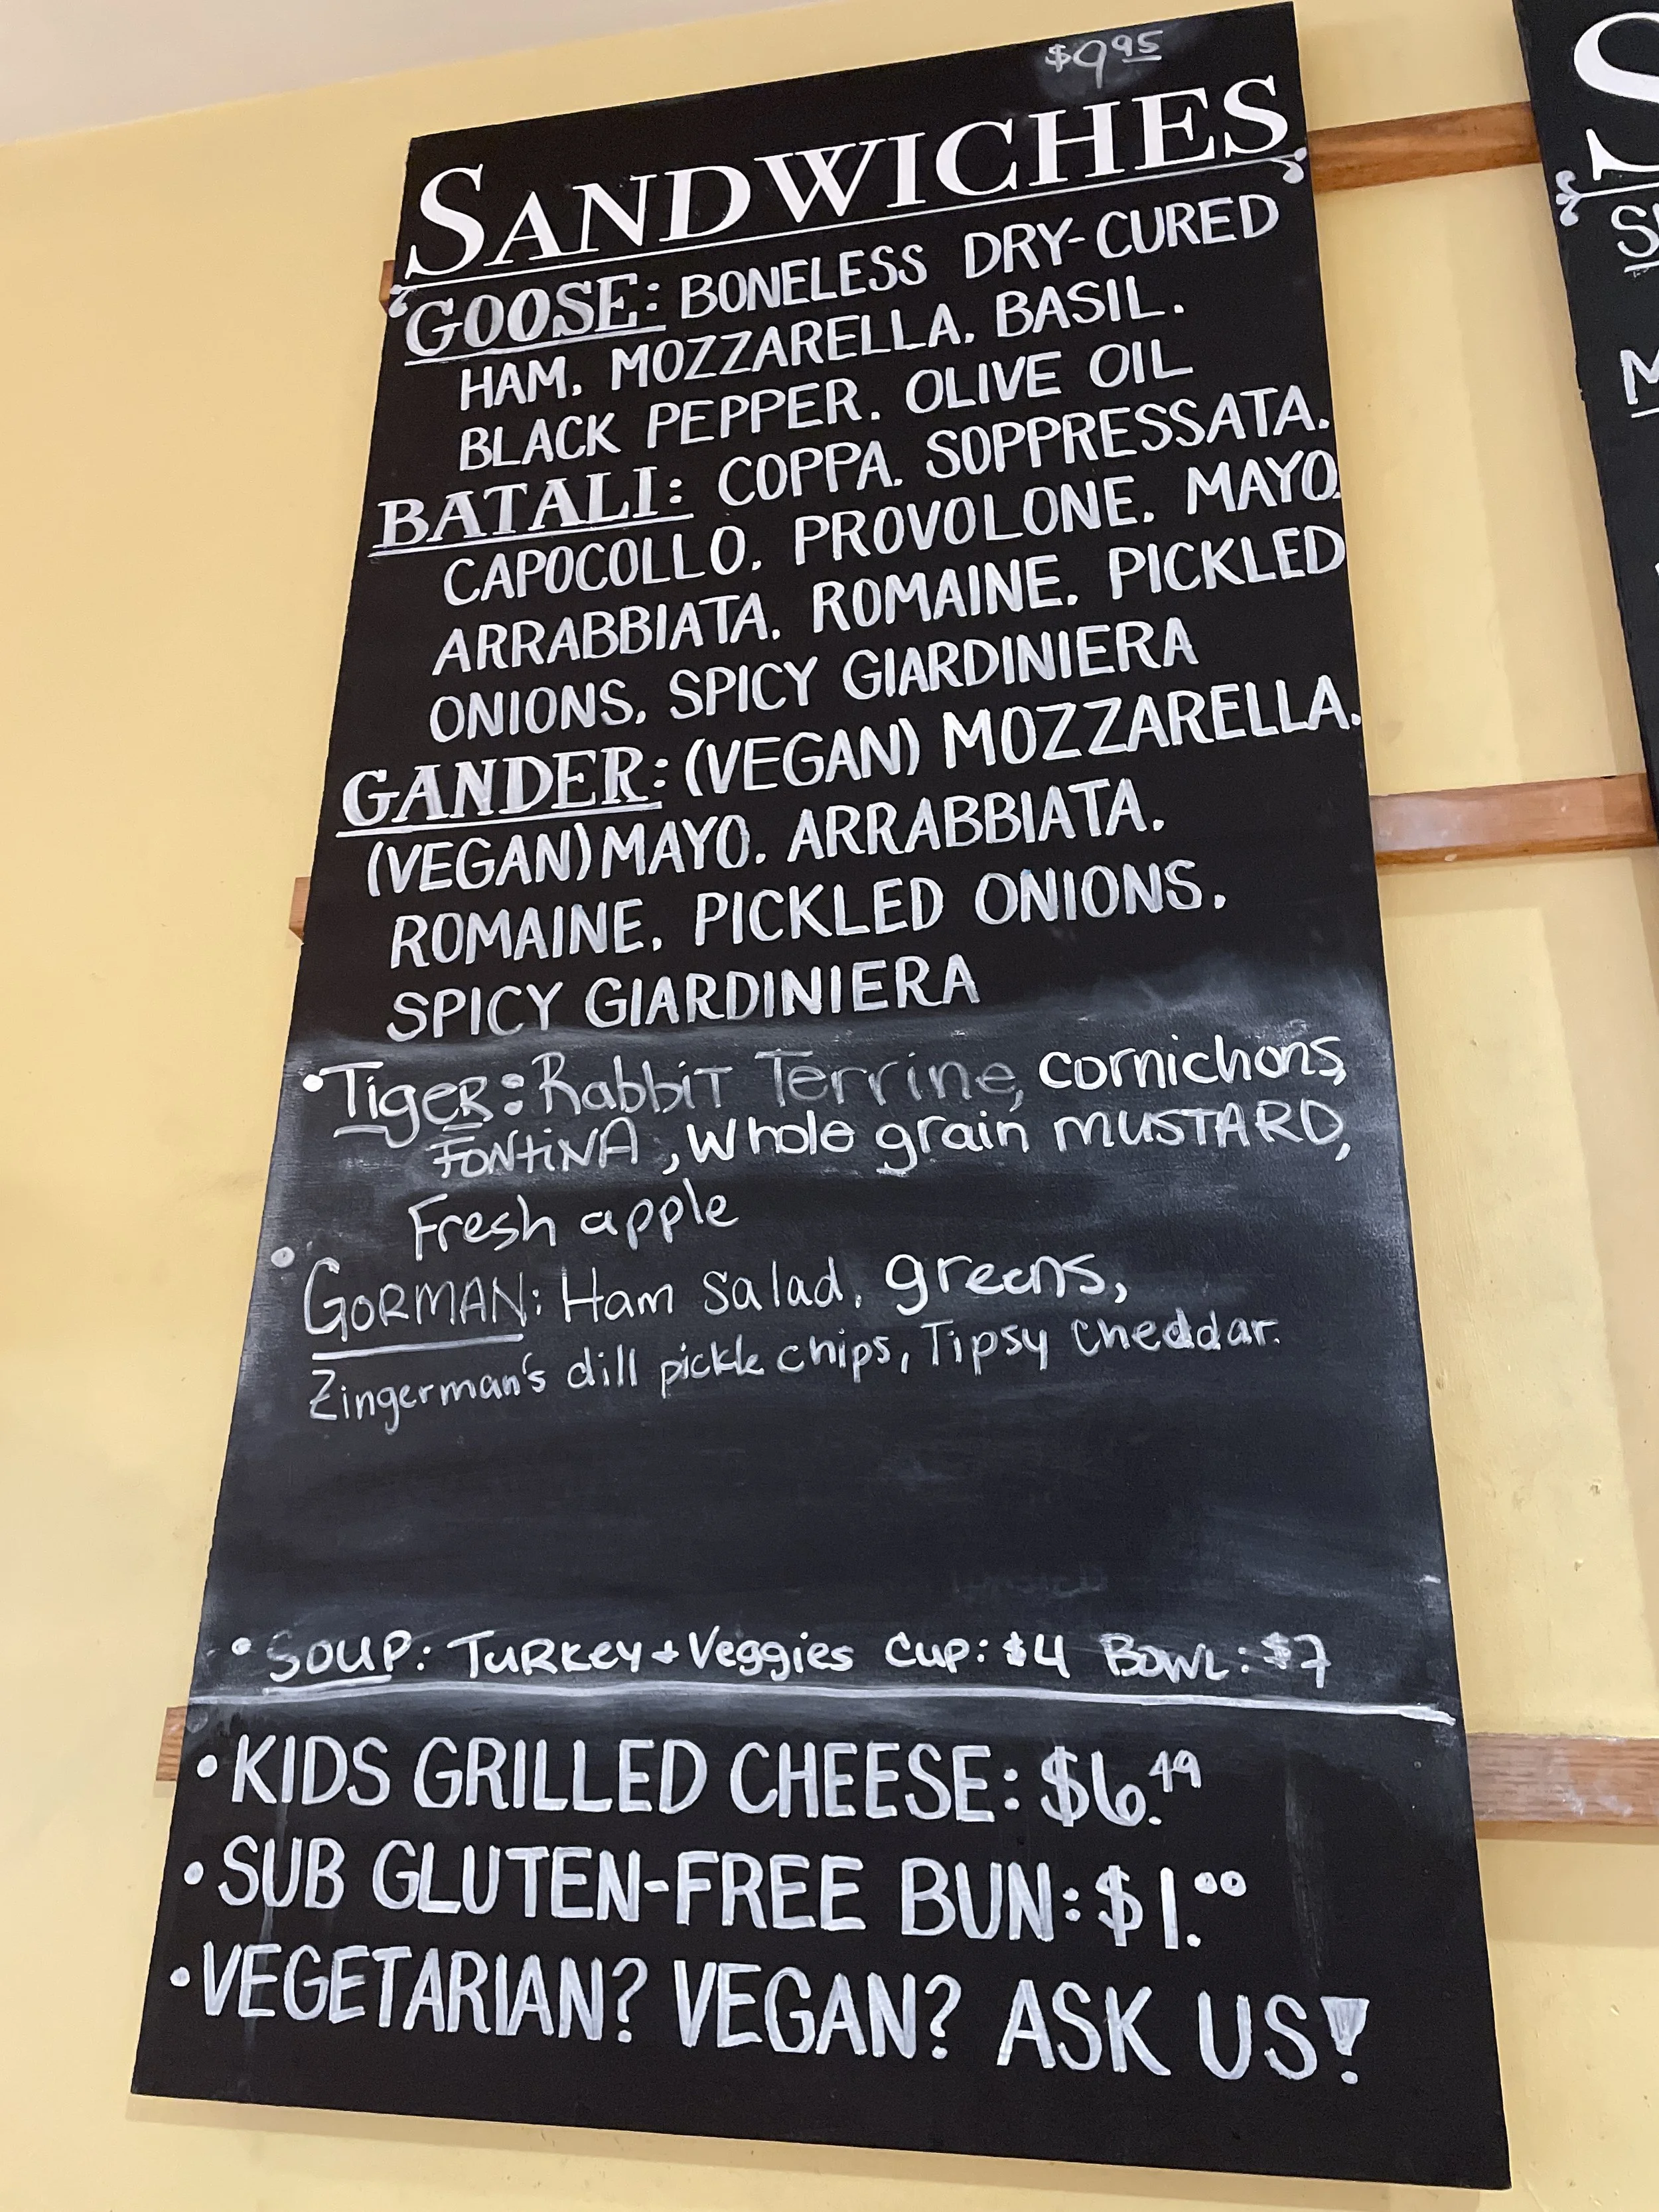 $9.95
SANDWICHES
GOOSE: BONELESS DRY-CURED
HAM. MOZZARELLA. BASIL.
BLACK PEPPER. OLIVE OIL
BATALI: COPPA. SOPPRESSATA.
CAPOCOLLO. PROVOLONE. MAYO.
ARRABBIATA. ROMAINE. PICKLED
ONIONS. SPICY GIARDINIERA
GANDER: (VEGAN) MOZZARELLA.
(VEGAN) MAYO. ARRABBIATA.
ROMAINE. PICKLED ONIONS.
SPICY GIARDINIERA
• Tiger: Rabbit Terrine, cornichons,
FONTINA, Whole grain MUSTARD,
Fresh apple
• GORMAN: Ham Salad, greens,
Zingerman's dill pickle chips, Tipsy Cheddar.
• SOUP: TURKEY + Veggies Cup: $4 BOWL: $7
• KIDS GRILLED CHEESE: $6.49
• SUB GLUTEN-FREE BUN: $1.00
• VEGETARIAN? VEGAN? ASK US!
S
S
M